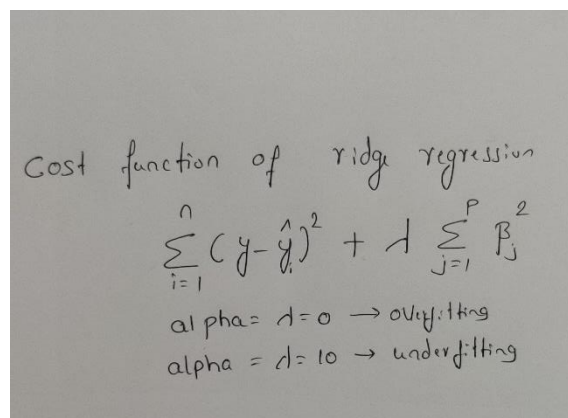 Cost function of ridge regression
n Σ i=1 (y-ŷi)² + λ p Σ j=1 βj²
alpha = λ=0 → overfitting
alpha = λ= 10 → underfitting